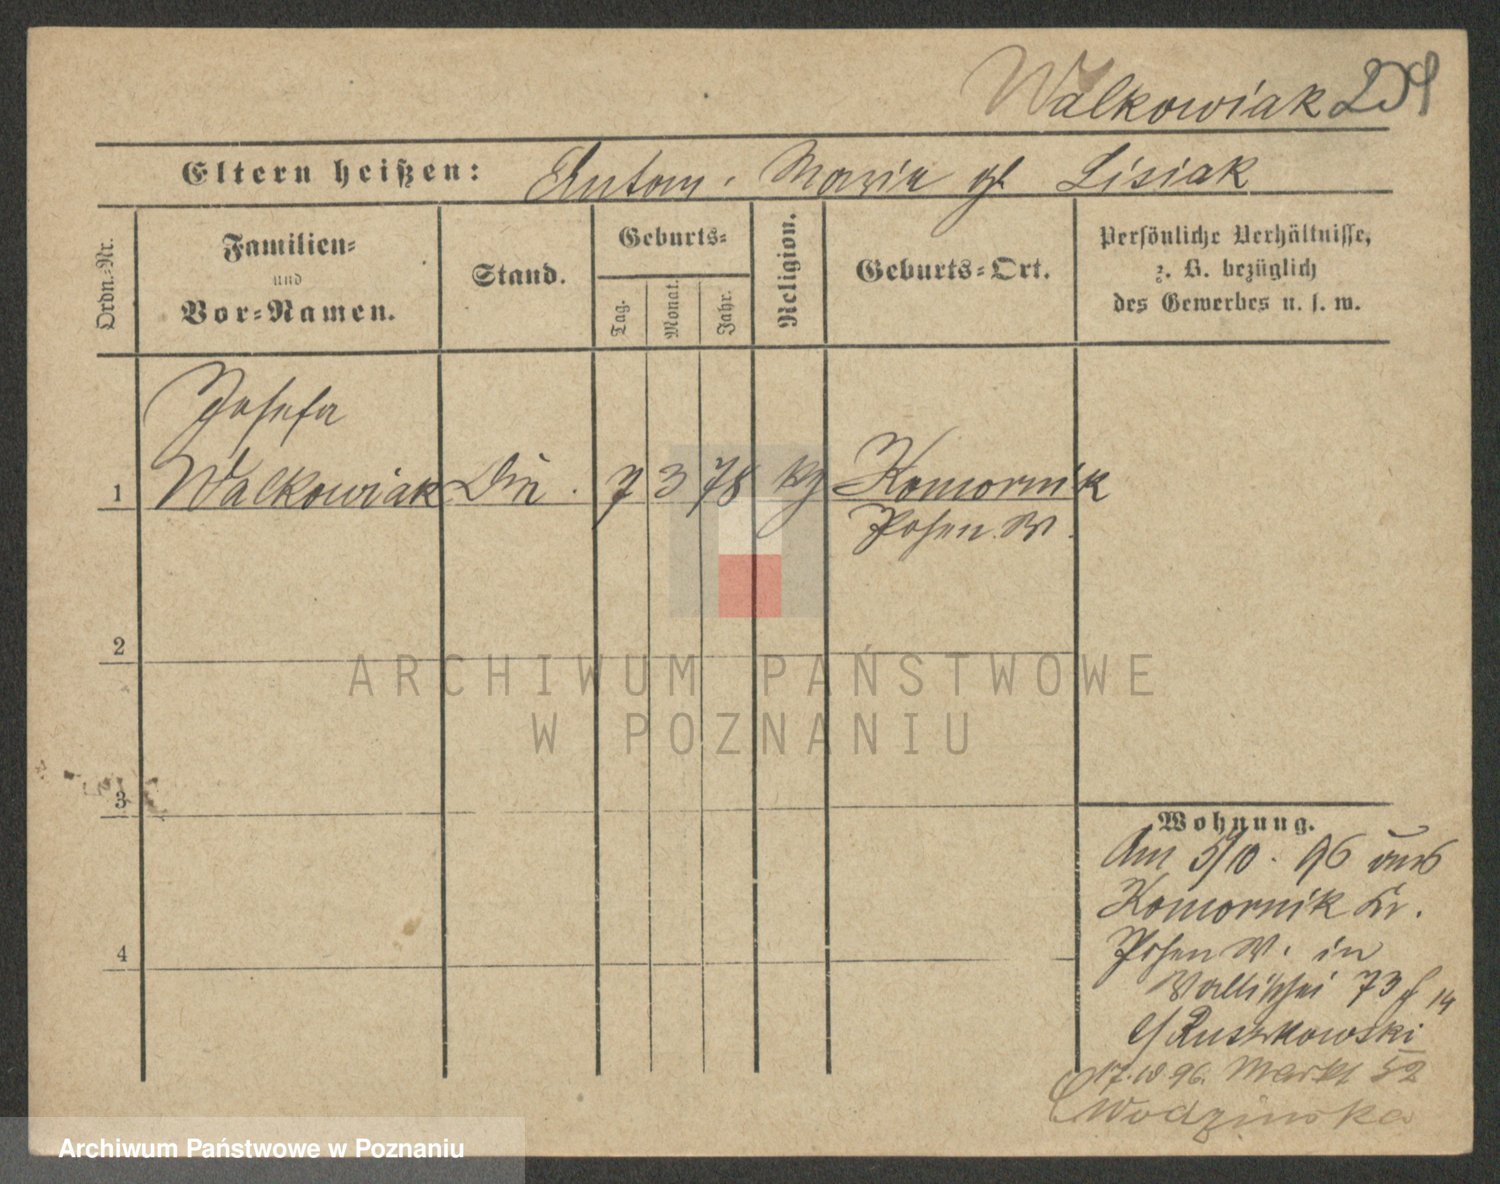 Walkowiak
Eltern heißen: Anton, Maria gb Lisiak
Ordn.-Nr.
Familien-
und
Vor-Namen.
Stand.
Geburts-
Tag.
Monat.
Jahr.
Religion.
Geburts-Ort.
Persönliche Verhältnisse,
z. B. bezüglich
des Gewerbes u. s. w.
Josefa
1 Walkowiak 7 3 78 Komornik
Posen W.
2
3
4
Wohnung.
Am 5/10. 96 aus
Komornik Kr.
Posen W. in
Wallischei 73
Ruszkowski
17.10 96. Markt 52
Wodzinska
ARCHIWUM PAŃSTWOWE
W POZNANIU
Archiwum Państwowe w Poznaniu